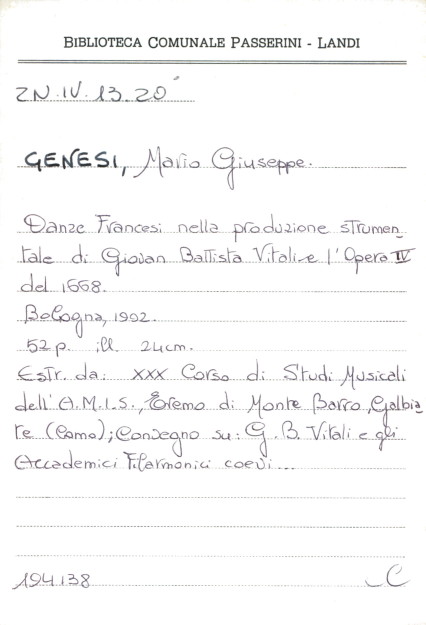 BIBLIOTECA COMUNALE PASSERINI - LANDI
ZN.IV.13.20
GENESI, Mario Giuseppe.
Danze Francesi nella produzione strumen
tale di Giovan Battista Vitali e l'Opera IV
del 1668.
Bologna, 1992.
52 p. ill. 24cm.
Estr. da: XXX Corso di Studi Musicali
dell'A.M.I.S., Eremo di Monte Barro, Galbia
te (Como); Convegno su: G.B. Vitali e gli
Accademici Filarmonici coevi...
194138
C